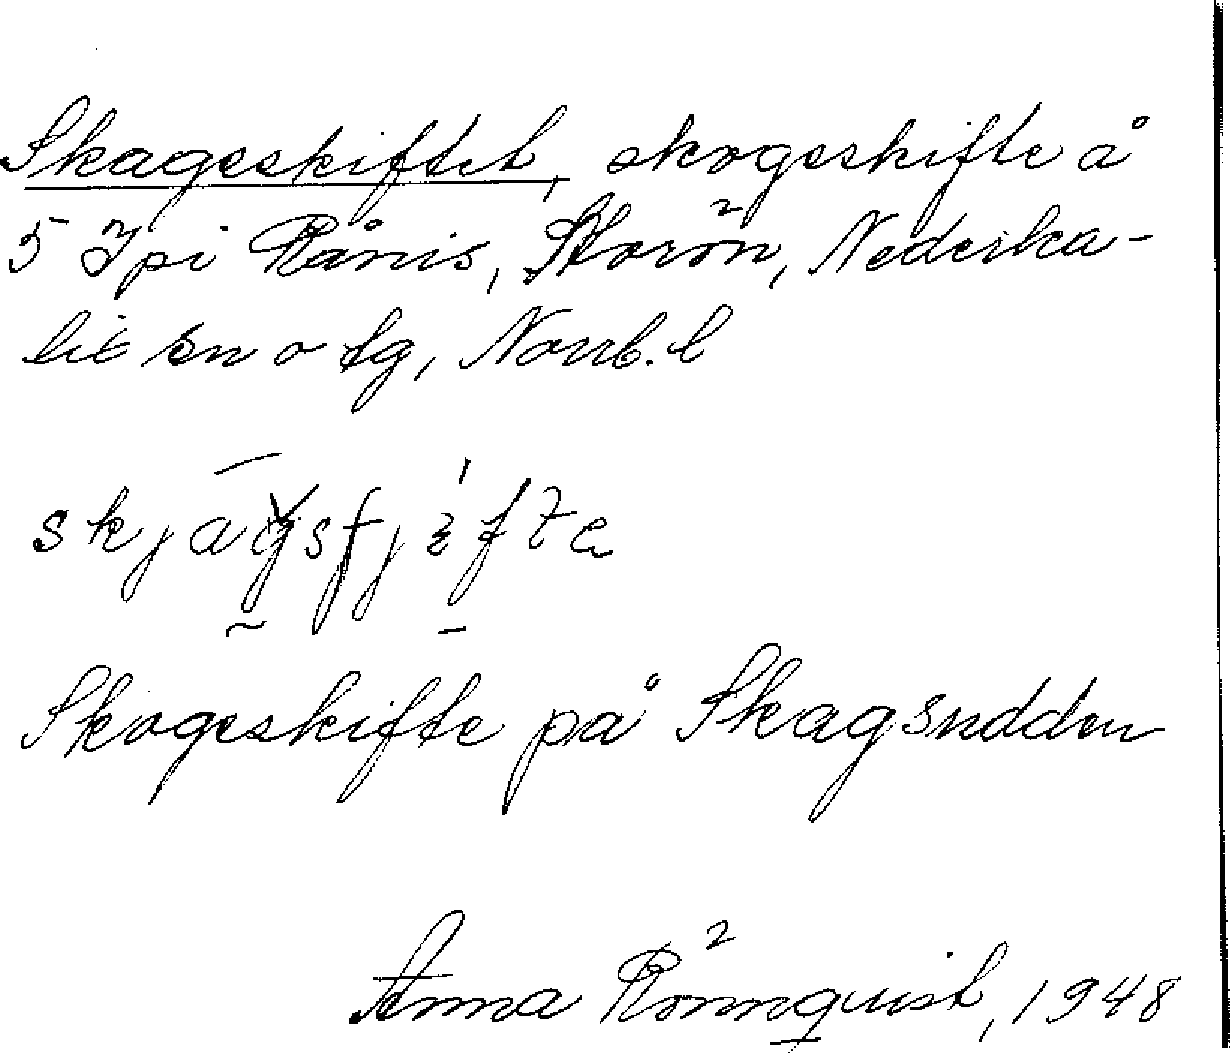 Skageskiftet, skogeskifte å
5 J pi Rånis, Storön, Nederka-
lix sn o tg, Norrb. l
Skogeskifte på Skagsudden
Anna Rönnquist, 1948